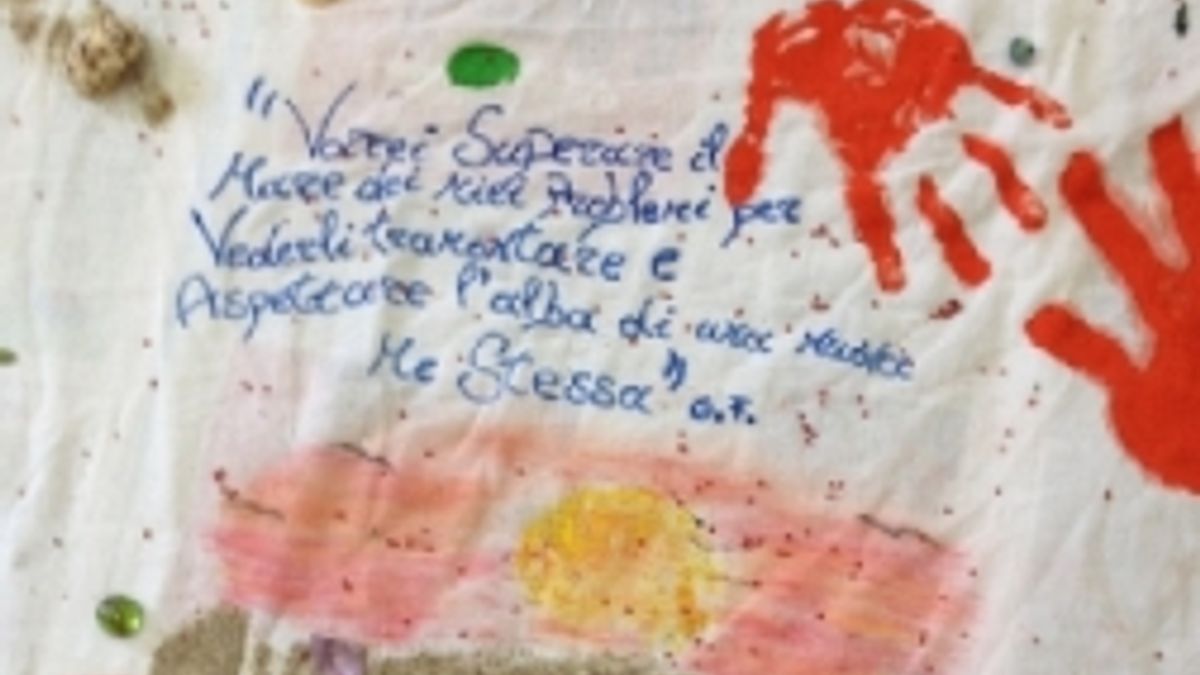 "Vorrei Superare il
Mare dei miei Problemi per
Vederli tramontare e
Aspettare l'alba di una nuova
Me Stessa"